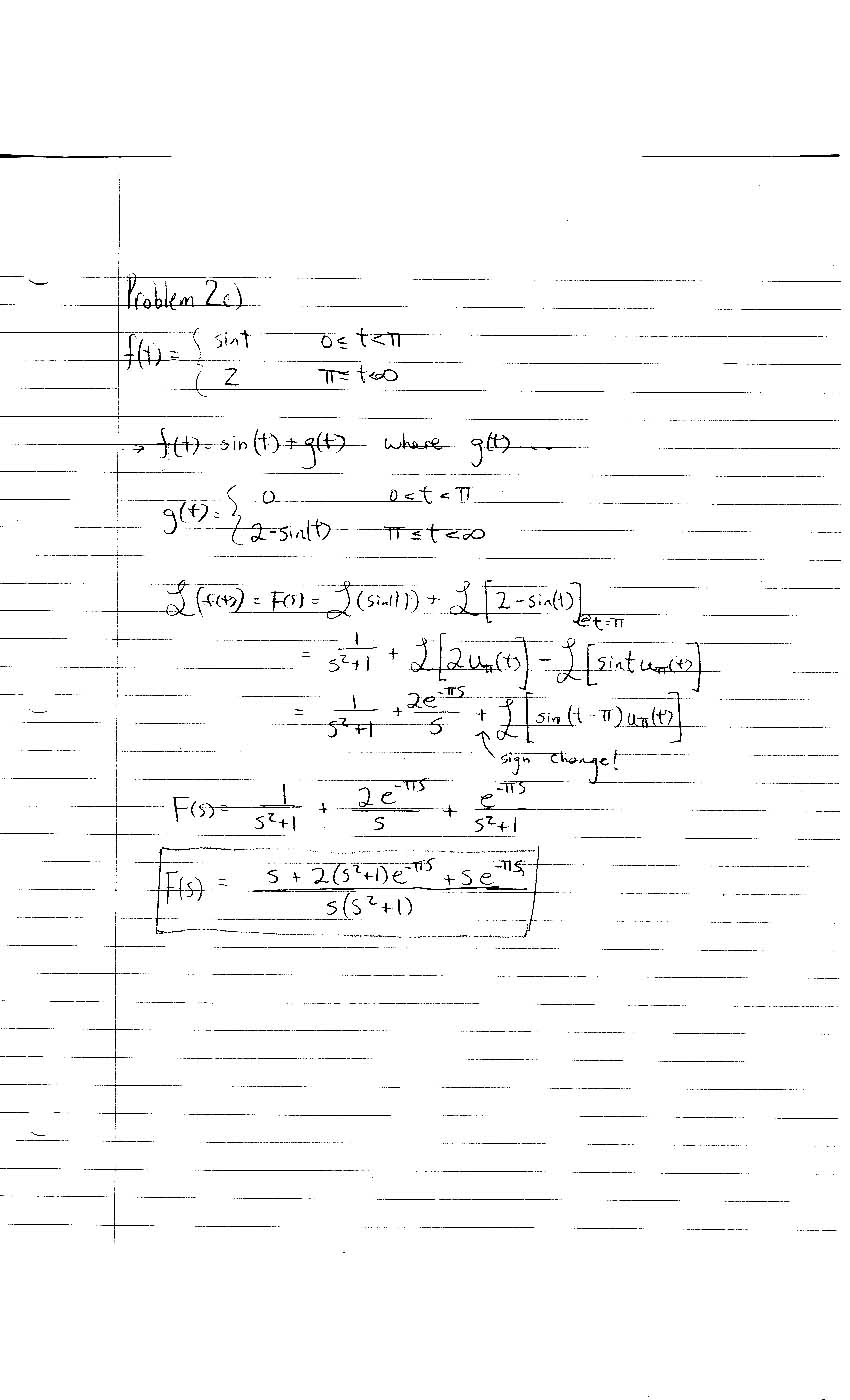 Problem 2c)
f(t) = { sin t 0 ≤ t < π
2 π ≤ t < ∞
→ f(t) = sin(t) + g(t) where g(t) ...
g(t) = { 0 0 < t < π
2 - sin(t) π ≤ t < ∞
ℒ(f(t)) = F(s) = ℒ(sin(t)) + ℒ[2 - sin(t)]@t=π
= 1/(s²+1) + ℒ[2u_π(t)] - ℒ[sin t u_π(t)]
= 1/(s²+1) + 2e^(-πs)/s + ℒ[sin(t - π)u_π(t)]
↑ sign change!
F(s) = 1/(s²+1) + 2e^(-πs)/s + e^(-πs)/(s²+1)
F(s) = (s + 2(s²+1)e^(-πs) + se^(-πs))/(s(s²+1))